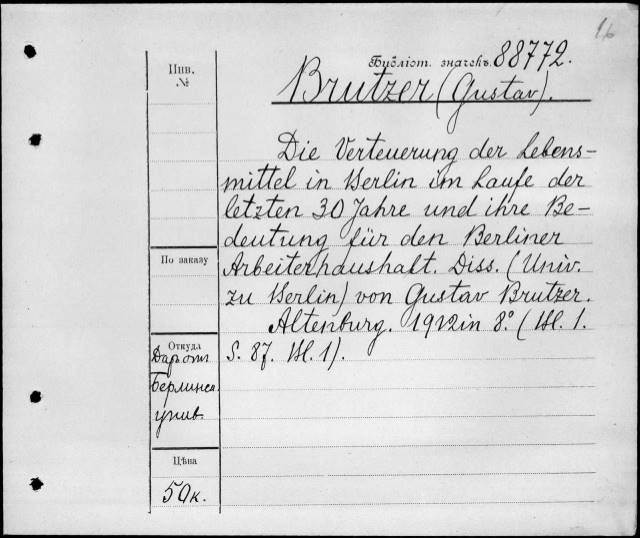 16
Библіот. значекъ 88772.
Инв.
№
Brutzer (Gustav).
Die Verteuerung der Lebens-
mittel in Berlin im Laufe der
letzten 30 Jahre und ihre Be-
deutung für den Berliner
Arbeiterhaushalt. Diss. (Univ.
zu Berlin) von Gustav Brutzer.
Altenburg. 1912 in 8.° (Bl. 1.
S. 87. Bl. 1).
По заказу
Откуда
Даръ отъ
Берлинск.
унив.
Цѣна
50к.